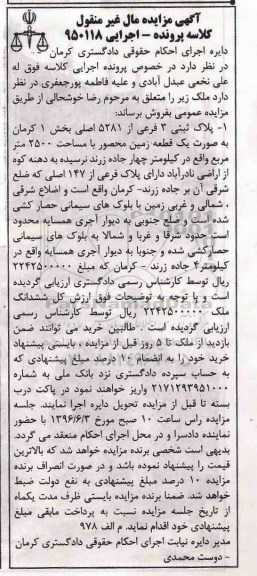 آگهی مزایده مال غیر منقول
کلاسه پرونده – اجرایی ۹۵۰۱۱۸
دایره اجرای احکام حقوقی دادگستری کرمان
در نظر دارد در خصوص پرونده اجرایی کلاسه فوق له
علی نخعی عبدل آبادی و علیه فاطمه پورجعفری در نظر
دارد ملک زیر را متعلق به مرحوم رضا خوشحالی از طریق
مزایده عمومی بفروش برساند:
۱- پلاک ثبتی ۳ فرعی از ۵۲۸۱ اصلی بخش ۱ کرمان
به صورت یک قطعه زمین محصور با مساحت ۲۵۰۰ متر
مربع واقع در کیلومتر چهار جاده زرند نرسیده به دهنه کوه
از اراضی نادرآباد دارای پلاک فرعی از ۱۴۷ اصلی که ضلع
شرقی آن بر جاده زرند– کرمان واقع است و اضلاع شرقی
، شمالی و غربی زمین با بلوک های سیمانی حصار کشی
شده است و ضلع جنوبی به دیوار آجری همسایه محدود
است حدود شرقا و غربا و شمالا به بلوک های سیمانی
حصارکشی شده و جنوبا به دیوار آجری همسایه واقع در
کیلومتر۴ جاده زرند – کرمان که مبلغ ۲۲۴۲۵۰۰۰۰۰
ریال توسط کارشناس رسمی دادگستری ارزیابی گردیده
است و با توجه به توضیحات فوق ارزش کل ششدانگ
ملک ۲۲۴۲۵۰۰۰۰۰ ریال توسط کارشناس رسمی
ارزیابی گردیده است . طالبین خرید می توانند ضمن
بازدید از ملک تا ۵ روز قبل از مزایده ، بایستی پیشنهاد
خرید خود را به انضمام ۱۰ درصد مبلغ پیشنهادی که
به حساب سپرده دادگستری نزد بانک ملی به شماره
۲۱۷۱۲۹۳۹۵۱۰۰۰ واریز خواهند نمود در پاکت درب
بسته تا قبل از مزایده تحویل دایره اجرا نمایند. جلسه
مزایده راس ساعت ۱۰ صبح مورخ ۱۳۹۶/۶/۳ با حضور
نماینده دادسرا و در محل اجرای احکام منعقد می گردد.
بدیهی است شخصی برنده مزایده خواهد شد که بالاترین
قیمت را پیشنهاد نموده باشد و در صورت انصراف برنده
مزایده ۱۰ درصد مبلغ پیشنهادی به نفع دولت ضبط
خواهد شد. ضمنا برنده مزایده بایستی ظرف مدت یکماه
از تاریخ جلسه مزایده نسبت به پرداخت مابقی مبلغ
پیشنهادی خود اقدام نماید. م الف ۹۷۸
مدیر دایره نیابت اجرای احکام حقوقی دادگستری کرمان
– دوست محمدی